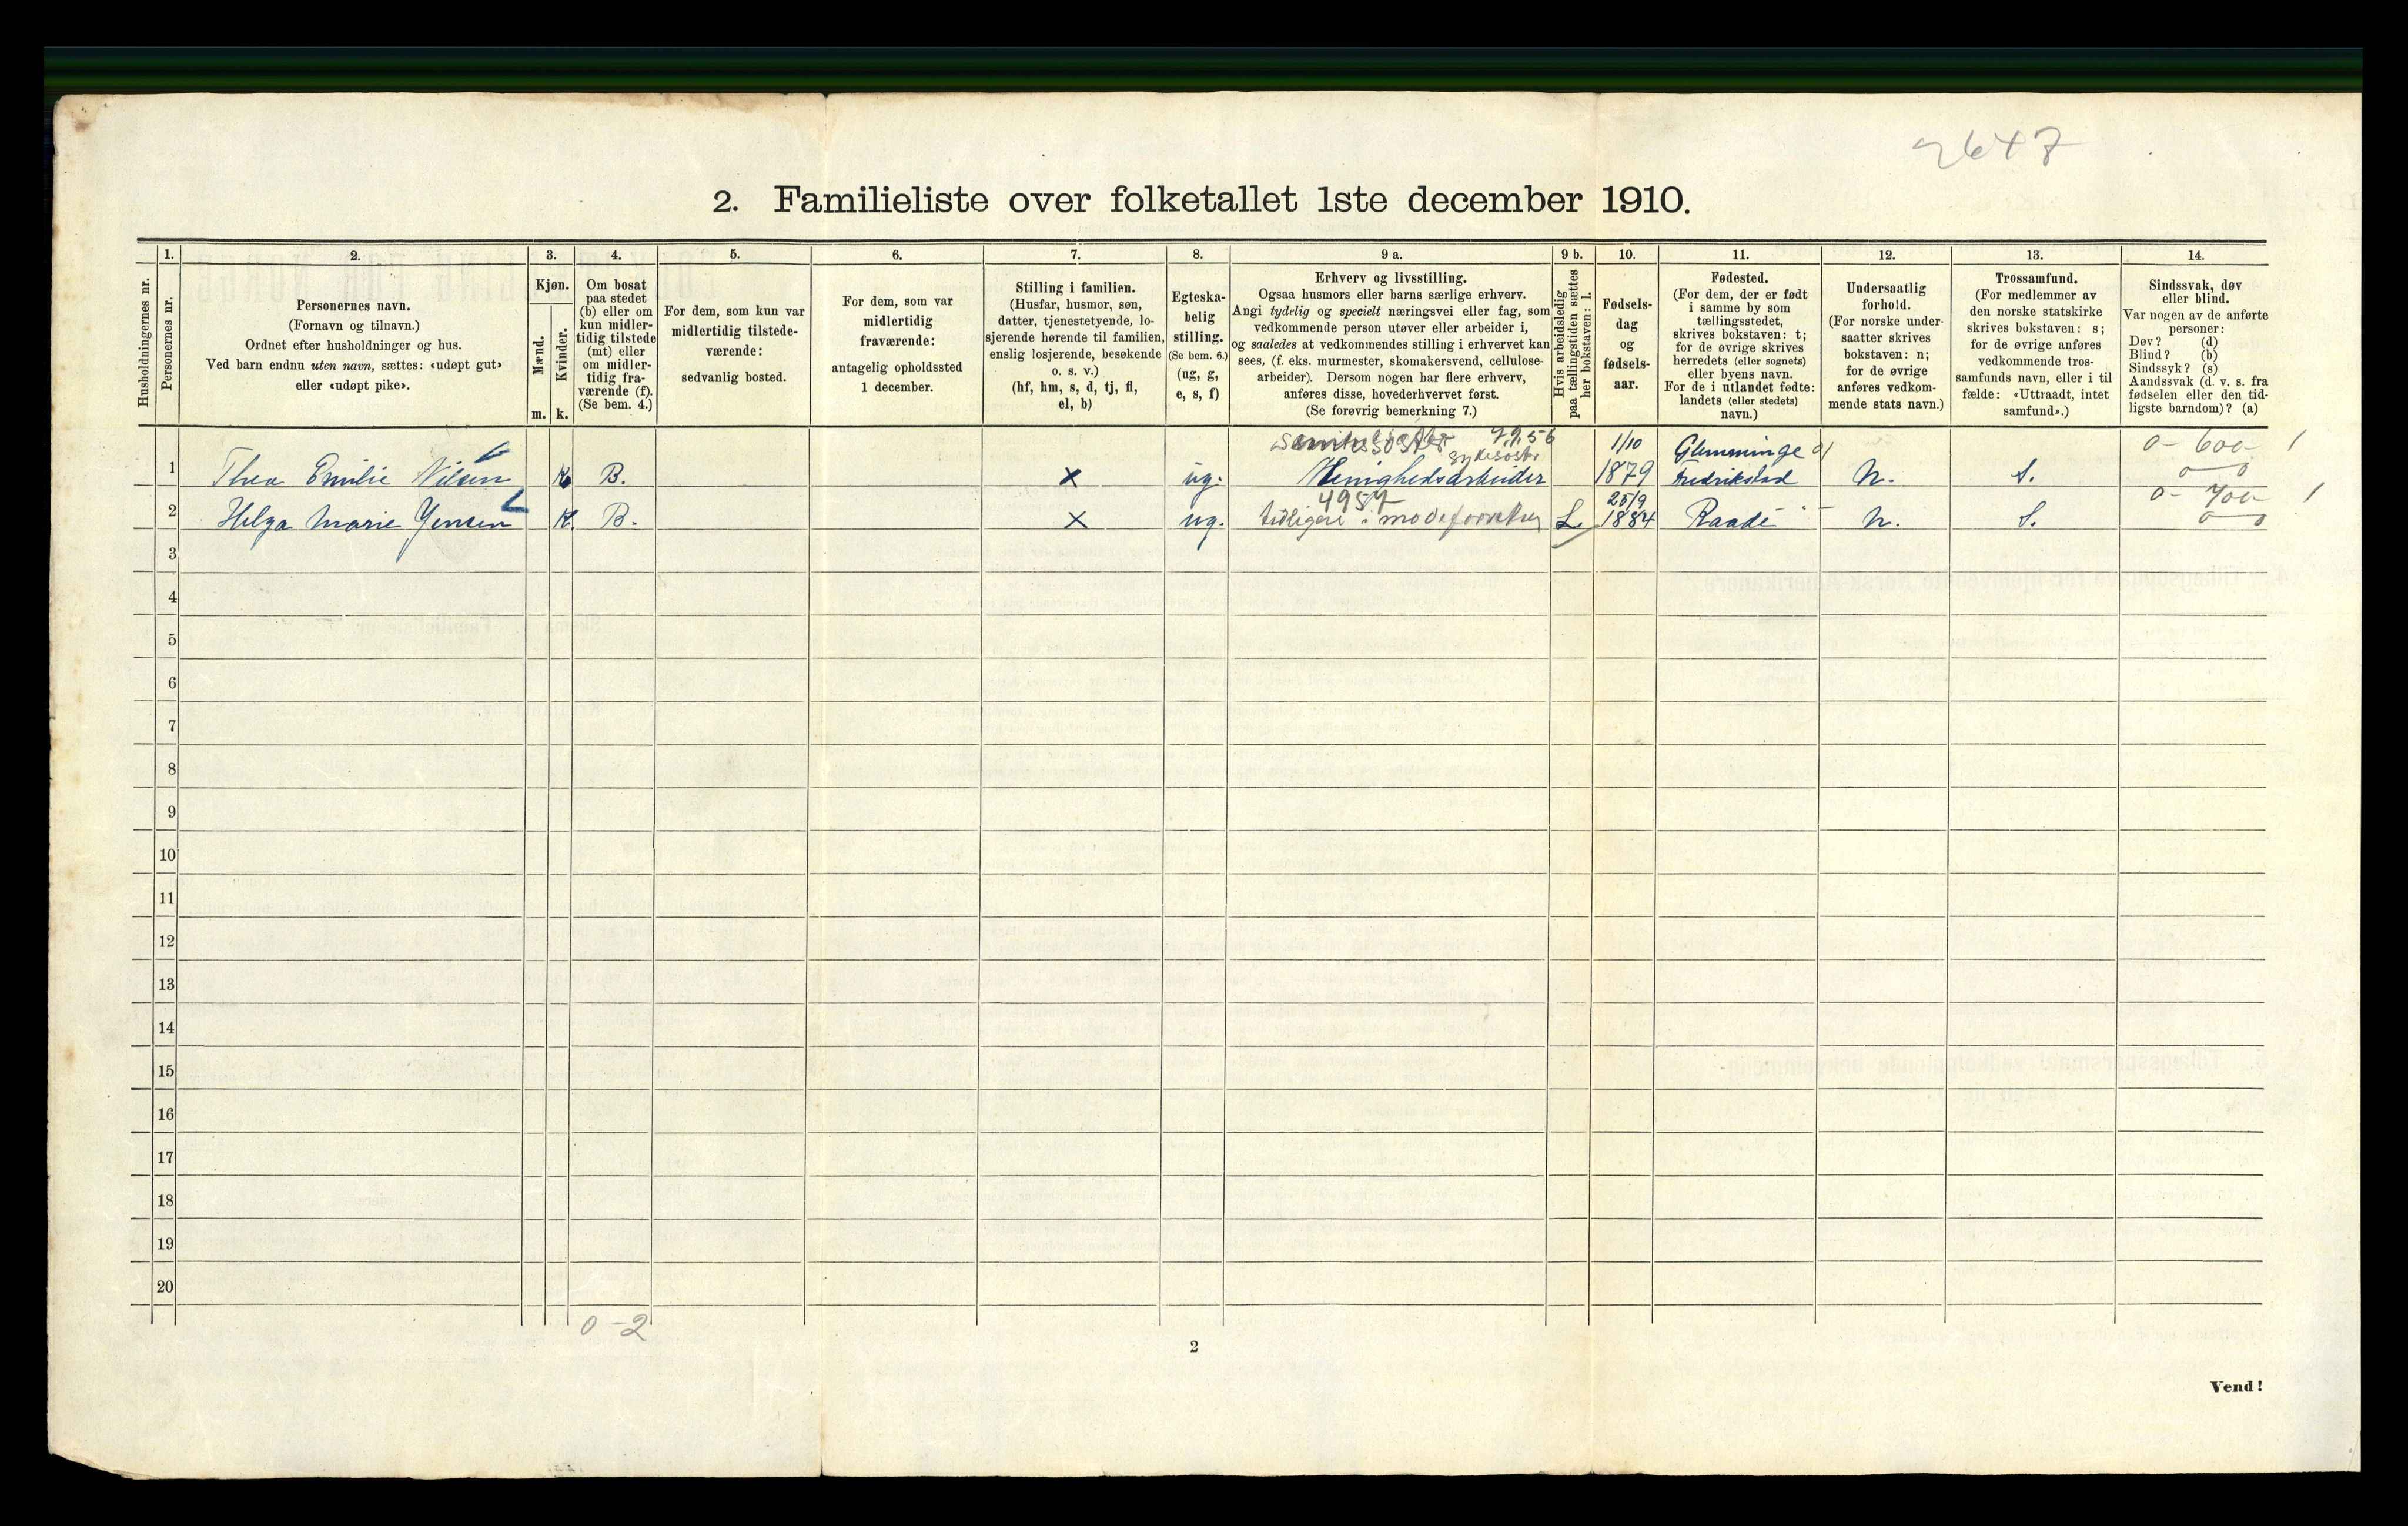 2647
2. Familieliste over folketallet 1ste december 1910.
Husholdningernes nr.
1.
Personernes nr.
2.
Personernes navn.
(Fornavn og tilnavn.)
Ordnet efter husholdninger og hus.
Ved barn endnu uten navn, sættes: «udøpt gut»
eller «udøpt pike».
3.
Kjøn.
Mænd.
m.
Kvinder.
k.
4.
Om bosat
paa stedet
(b) eller om
kun midler-
tidig tilstede
(mt) eller
om midler-
tidig fra-
værende (f).
(Se bem. 4.)
5.
For dem, som kun var
midlertidig tilstede-
værende:
sedvanlig bosted.
6.
For dem, som var
midlertidig
fraværende:
antagelig opholdssted
1 december.
7.
Stilling i familien.
(Husfar, husmor, søn,
datter, tjenestetyende, lo-
sjerende hørende til familien,
enslig losjerende, besøkende
o. s. v.)
(hf, hm, s, d, tj, fl,
el, b)
8.
Egteska-
belig
stilling.
(Se bem. 6.)
(ug, g,
e, s, f)
9 a.
Erhverv og livsstilling.
Ogsaa husmors eller barns særlige erhverv.
Angi tydelig og specielt næringsvei eller fag, som
vedkommende person utøver eller arbeider i,
og saaledes at vedkommendes stilling i erhvervet kan
sees, (f. eks. murmester, skomakersvend, cellulose-
arbeider). Dersom nogen har flere erhverv,
anføres disse, hovederhvervet først.
(Se forøvrig bemerkning 7.)
9 b.
Hvis arbeidsledig
paa tællingstiden sættes
her bokstaven: l.
10.
Fødsels-
dag
og
fødsels-
aar.
11.
Fødested.
(For dem, der er født
i samme by som
tællingsstedet,
skrives bokstaven: t;
for de øvrige skrives
herredets (eller sognets)
eller byens navn.
For de i utlandet fødte:
landets (eller stedets)
navn.)
12.
Undersaatlig
forhold.
(For norske under-
saatter skrives
bokstaven: n;
for de øvrige
anføres vedkom-
mende stats navn.)
13.
Trossamfund.
(For medlemmer av
den norske statskirke
skrives bokstaven: s;
for de øvrige anføres
vedkommende tros-
samfunds navn, eller i til
fælde: «Uttraadt, intet
samfund».)
14.
Sindssvak, døv
eller blind.
Var nogen av de anførte
personer:
Døv? (d)
Blind? (b)
Sindssyk? (s)
Aandssvak (d. v. s. fra
fødselen eller den tid-
ligste barndom)? (a)
sykesøster 1/10 Glemminge 0-600 1
1 Thea Emilie Nilsen K B. x ug. Menighedsarbeider 1879 Fredrikstad N. S. 0 0
4957 25/9 0-700 1
2 Helga Marie Jensen K. B. x ug. tidligere i modeforretng L. 1884 Raade N. S. 0 0
3
4
5
6
7
8
9
10
11
12
13
14
15
16
17
18
19
20
0-2
2
Vend!